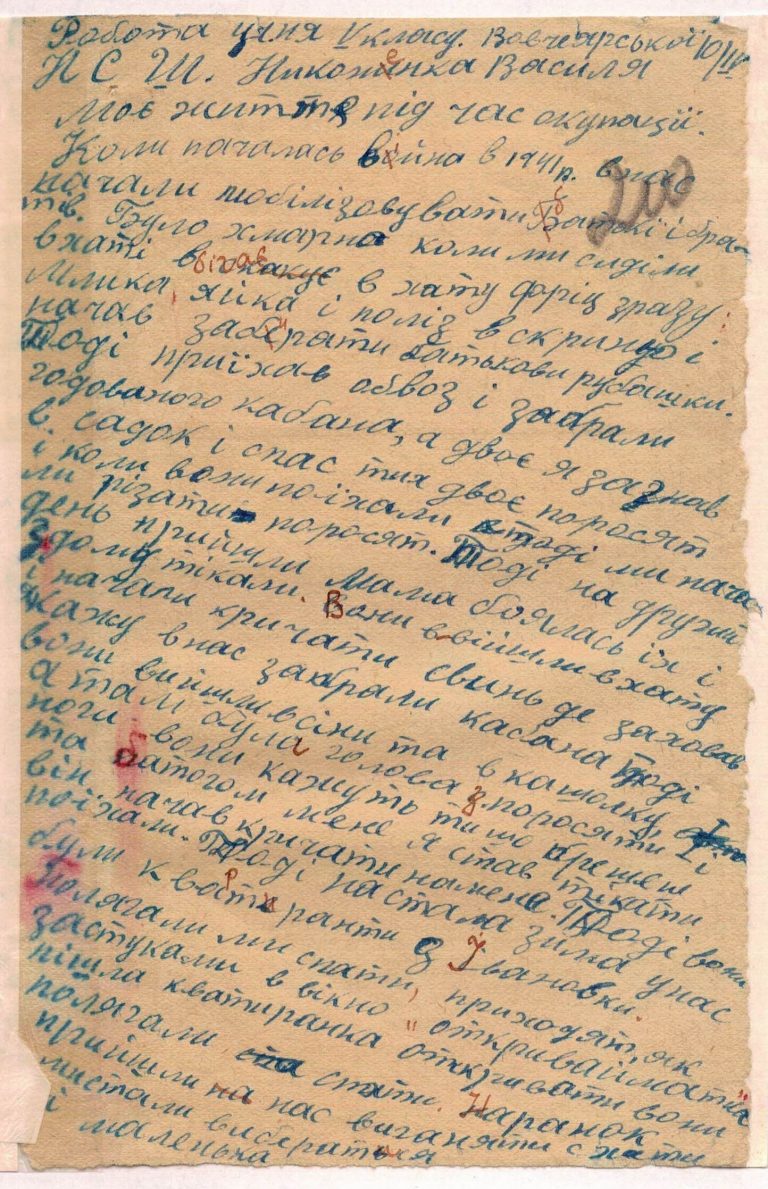 Робота учня V класу. Вовчеярської 10/IV
Н С Ш. Никоненка Василя
Моє життя під час окупації.
Коли почалась война в 1941 р. в нас
начали мобілізовувати Батькі і брат-
тів. Було хмарно коли ми сиділи
в хаті вбігав в хату фріц зразу:
млика, яйка і поліз в скриню і
начав забирати батькови рубашки.
Тоді приїхав обвоз і забрали
годованого кабана, а двоє я загнав
в садок і спас тих двоє поросят
і коли вони поїхали тоді ми нача-
ли різати поросят. Тоді на другий
день прийшли Мама боялась їх і
здому тікали. Вони ввійшли в хату
і начали кричати свинь де заховав
Кажу в нас забрали касана тоді
вони вийшли всіни та в кашолку
а там була голова зпоросяти і
ноги вони кажуть тищо брешеш
та батогом мене я став тікати
він начав кричати на мене. Тоді вони
поїхали. Тоді настала зіма у нас
були квартиранти з Івановки.
Полягали ми спати, приходят, як
застукали в вікно "открывай матка"
пішла кватиранка открывати вони
полягали спати. Наранок
прийшли на нас виганяти с хати
ми стали вибератся
і маленька